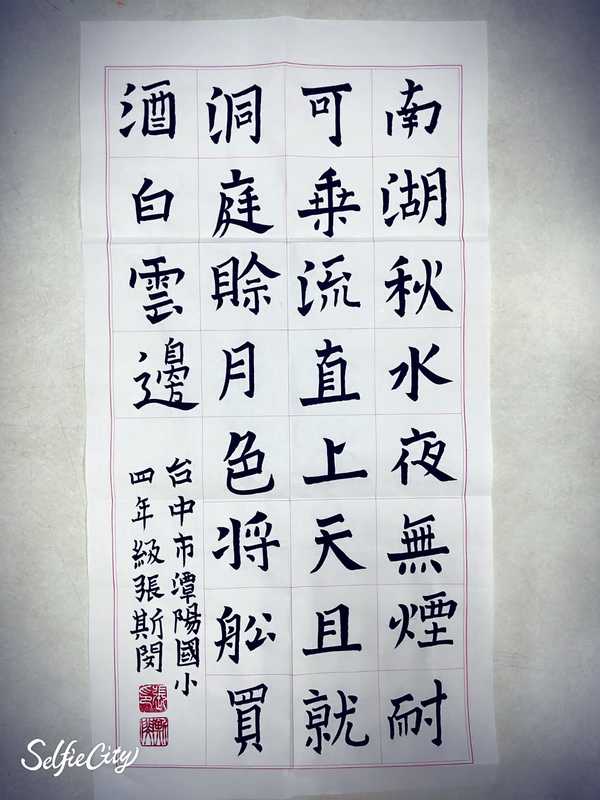 南湖秋水夜無煙耐
可乗流直上天且就
洞庭賖月色将舩買
酒白雲邊
台中市潭陽國小
四年級張斯閔
SelfieCity